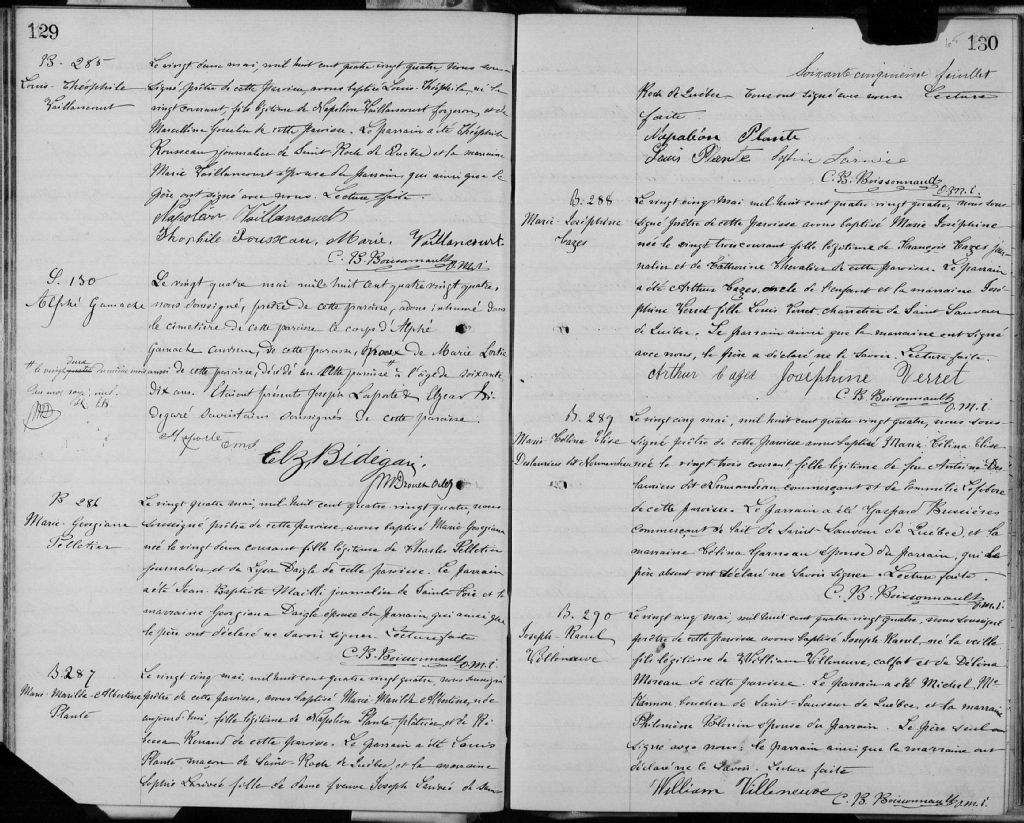 129
B. 285
Louis-Théophile
Vaillancourt
Le vingt deux mai, mil huit cent quatre vingt quatre nous sous-
signé, prêtre de cette paroisse, avons baptisé Louis-Théophile, né le
vingt courant, fils légitime de Napoléon Vaillancourt forgeron, et de
Marcelline Gosselin de cette paroisse. Le parrain a été Théophile
Rousseau journalier de Saint Roch de Québec et la marraine
Marie Vaillancourt épouse du parrain, qui ainsi que le
père, ont signé avec nous. Lecture faite.
Napoleon Vaillancourt
Théophile Rousseau. Marie. Vaillancourt.
C. B. Boissonnault, O.m.i.
S. 130
Alphé Gamache
Le vingt quatre mai mil huit cent quatre vingt quatre,
nous soussigné, prêtre de cette paroisse, avons inhumé dans
le cimetière de cette paroisse le corps d'Alphé
Gamache cordonnier, de cette paroisse, époux de Marie Lortie
aussi de cette paroisse, décédé en cette paroisse à l'âge de soixante
dix ans. Étaient présents Joseph Laporte & Elzear Bi-
degaré sacristains soussignés de cette paroisse.
Elz Bidégaré.
B 286
Marie-Georgiana
Pelletier
Le vingt quatre mai, mil huit cent quatre-vingt quatre, nous
soussigné prêtre de cette paroisse, avons baptisé Marie Georgiana
née le vingt deux courant fille légitime de Charles Pelletier
journalier et de Lysa Daigle de cette paroisse. Le parrain
a été Jean Baptiste Mailli journalier de Sainte Foie et la
marraine Georgiana Daigle épouse du parrain, qui ainsi que
le père ont déclaré ne savoir signer. Lecture faite
C. B. Boissonnault O.m.i.
B. 287
Marie-Marilda Albertine
Plante
Le vingt cinq mai, mil huit cent quatre vingt quatre, nous soussigné
prêtre de cette paroisse, avons baptisé Marie Marilda Albertine, née
aujourd'hui, fille légitime de Napoléon Plante platrier, et de Ré-
becca Renaud de cette paroisse. Le parrain a été Louis
Plante maçon de Saint-Roch de Québec, et la marraine
Sophie Larivée fille de Dame
130
Soixante cinquième feuillet
Roch de Québec. Tous ont signé avec nous. Lecture
faite.
Napoléon Plante
Louis Plante Sophie Larivée
C. B. Boissonnault, O.m.i.
B. 288
Marie-Joséphine
Cazes
Le vingt cinq mai mil huit cent quatre-vingt-quatre, nous sous-
signé prêtre de cette paroisse avons baptisé Marie Joséphine
née le vingt trois courant fille légitime de François Cazes jour-
nalier et de Catherine Chevalier de cette paroisse. Le parrain
a été Arthur Cazes, oncle de l'enfant et la marraine José-
phine Verret fille Louis Verret, charretier de Saint Sauveur
de Québec. Le parrain ainsi que la marraine ont signé
avec nous, le père a déclaré ne le savoir. Lecture faite.
Arthur Cazes Josephine Verret
C. B. Boissonnault O.m.i.
B. 289
Marie Célina Elise
Deslauriers dit Normandeau
Le vingt cinq mai, mil huit cent quatre vingt quatre, nous sous-
signé prêtre de cette paroisse avons baptisé Marie Célina Elise
née le vingt trois courant fille légitime de feu Antoine Des-
lauriers dit Normandeau commerçant et de Emmélie Lefebvre
de cette paroisse. Le parrain a été Gaspard Bussières
commerçant de lait de Saint-Sauveur de Québec, et la
marraine Célina Garneau épouse du parrain, qui
père absent ont déclaré ne savoir signer. Lecture faite.
C. B. Boissonnault, O.m.i.
B. 290
Joseph-Raoul
Villeneuve
Le vingt cinq mai, mil huit cent quatre vingt quatre, nous soussigné
prêtre de cette paroisse avons baptisé Joseph Raoul, né la veille
fils légitime de William Villeneuve, calfat et de Délina
Moreau de cette paroisse. Le parrain a été Michel Mc
Kennon boucher de Saint-Sauveur de Québec, et la marraine
Philomène épouse du parrain. Le père seul a
signé avec nous, le parrain ainsi que la marraine ont
déclaré ne le savoir. Lecture faite
William Villeneuve
C. B. Boissonnault, O.m.i.